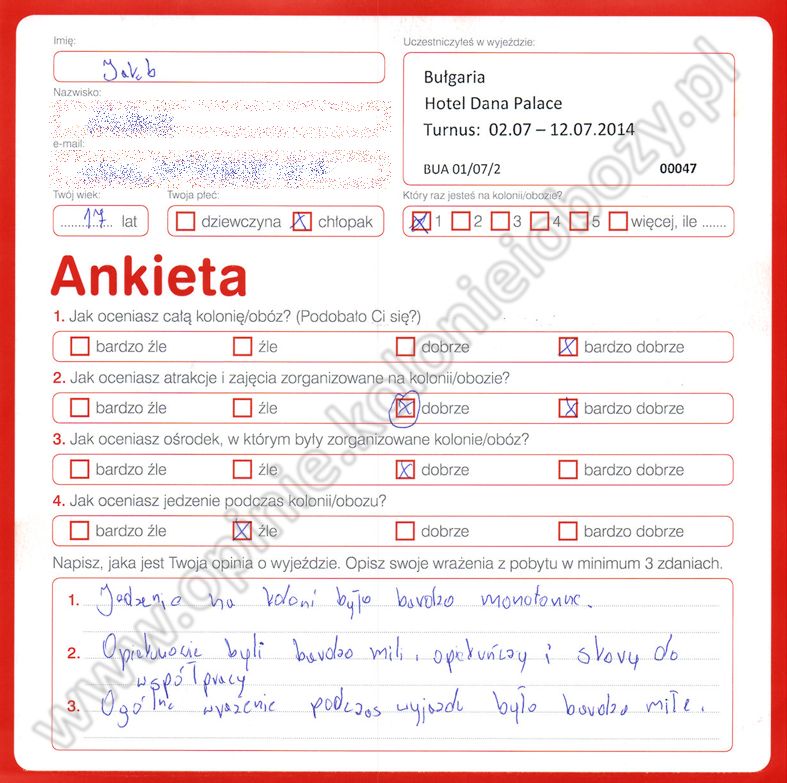 Imię:
Jakub
Nazwisko:
e-mail:
Twój wiek:
17 lat
Twoja płeć:
dziewczyna chłopak
Uczestniczyłeś w wyjeździe:
Bułgaria
Hotel Dana Palace
Turnus: 02.07 – 12.07.2014
BUA 01/07/2 00047
Który raz jesteś na kolonii/obozie?
1 2 3 4 5 więcej, ile .......
Ankieta
1. Jak oceniasz całą kolonię/obóz? (Podobało Ci się?)
bardzo źle źle dobrze bardzo dobrze
2. Jak oceniasz atrakcje i zajęcia zorganizowane na kolonii/obozie?
bardzo źle źle dobrze bardzo dobrze
3. Jak oceniasz ośrodek, w którym były zorganizowane kolonie/obóz?
bardzo źle źle dobrze bardzo dobrze
4. Jak oceniasz jedzenie podczas kolonii/obozu?
bardzo źle źle dobrze bardzo dobrze
Napisz, jaka jest Twoja opinia o wyjeździe. Opisz swoje wrażenia z pobytu w minimum 3 zdaniach.
1. Jedzenie na koloni było bardzo monotonne.
2. Opiekunowie byli bardzo mili, opiekuńczy i skory do
współpracy
3. Ogólne wrażenie podczas wyjazdu było bardzo miłe.
www.opinie.kolonieiobozy.pl